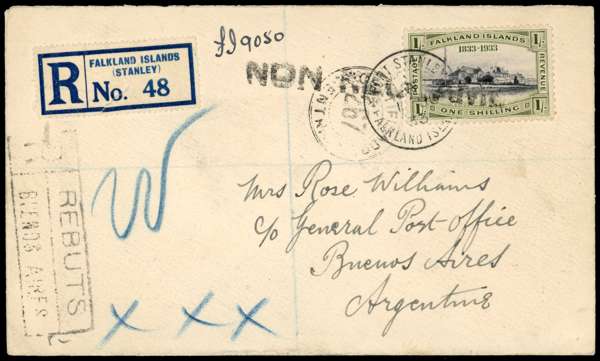 R
FALKLAND ISLANDS
(STANLEY)
No. 48
NON
FALKLAND ISLANDS
1833-1933
1/-
1/-
POSTAGE
REVENUE
1/-
1/-
ONE SHILLING
STANLEY
FALKLAND ISL
Mrs Rose Williams
c/o General Post Office
Buenos Aires
Argentine
REBUTS
BUENOS AIRES
W
X X X